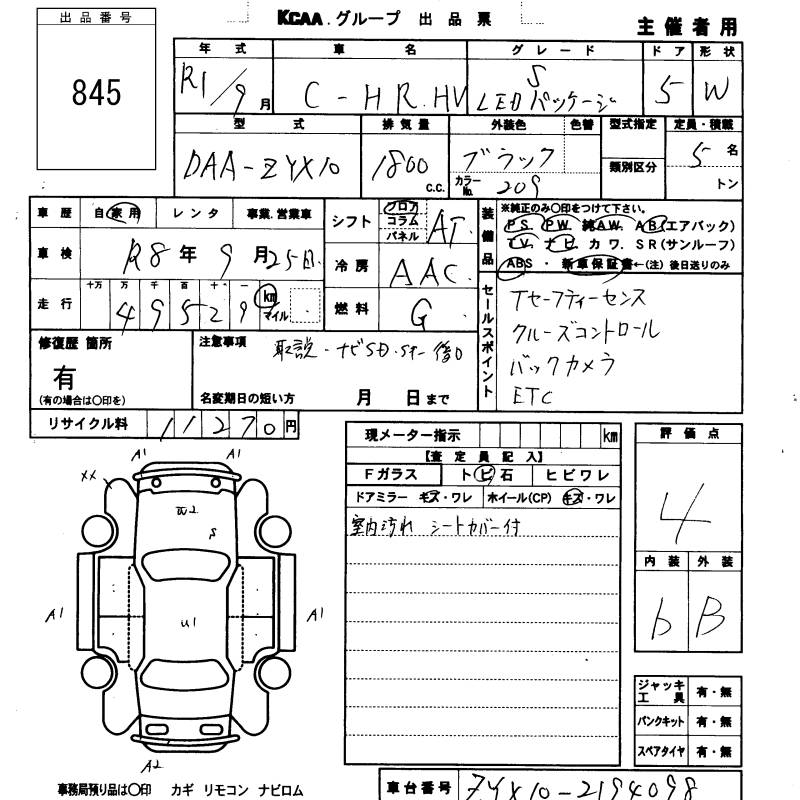 出品番号
845
KCAA.グループ 出品票
主催者用
年式 車名 グレード ドア 形状
R1/9月 C-HR.HV S LEDパッケージ 5 W
型式 排気量 外装色 色替 型式指定 定員・積載
DAA-ZYX10 1800 c.c. ブラック カラーNo. 209 類別区分 5名 トン
車歴 自家用 レンタ 事業.営業車
シフト フロア コラム パネル AT
装備品
※純正のみ〇印をつけて下さい。
PS. PW. 純AW. AB(エアバック)
TV. ナビ. カワ. SR(サンルーフ)
ABS ・ 新車保証書←(注) 後日送りのみ
車検 R8年9月25日
冷房 AAC
走行 十万 万 千 百 十 一
49529 km マイル
燃料 G
セールスポイント
Tセーフティーセンス
クルーズコントロール
バックカメラ
ETC
修復歴 箇所
有
(有の場合は〇印を)
注意事項
取説・ナビSD.
名変期日の短い方 月 日まで
リサイクル料 11270円
現メーター指示 km
【査定員記入】
Fガラス トビ石 ヒビワレ
ドアミラー キズ・ワレ ホイール(CP) キズ・ワレ
室内汚れ シートカバー付
評価点
4
内装 外装
b B
A1 A1
XX
W2
S
A1 U1 A1
A2
ジャッキ工具 有・無
パンクキット 有・無
スペアタイヤ 有・無
事務局預り品は〇印 カギ リモコン ナビロム
車台番号 ZYX10-2194098